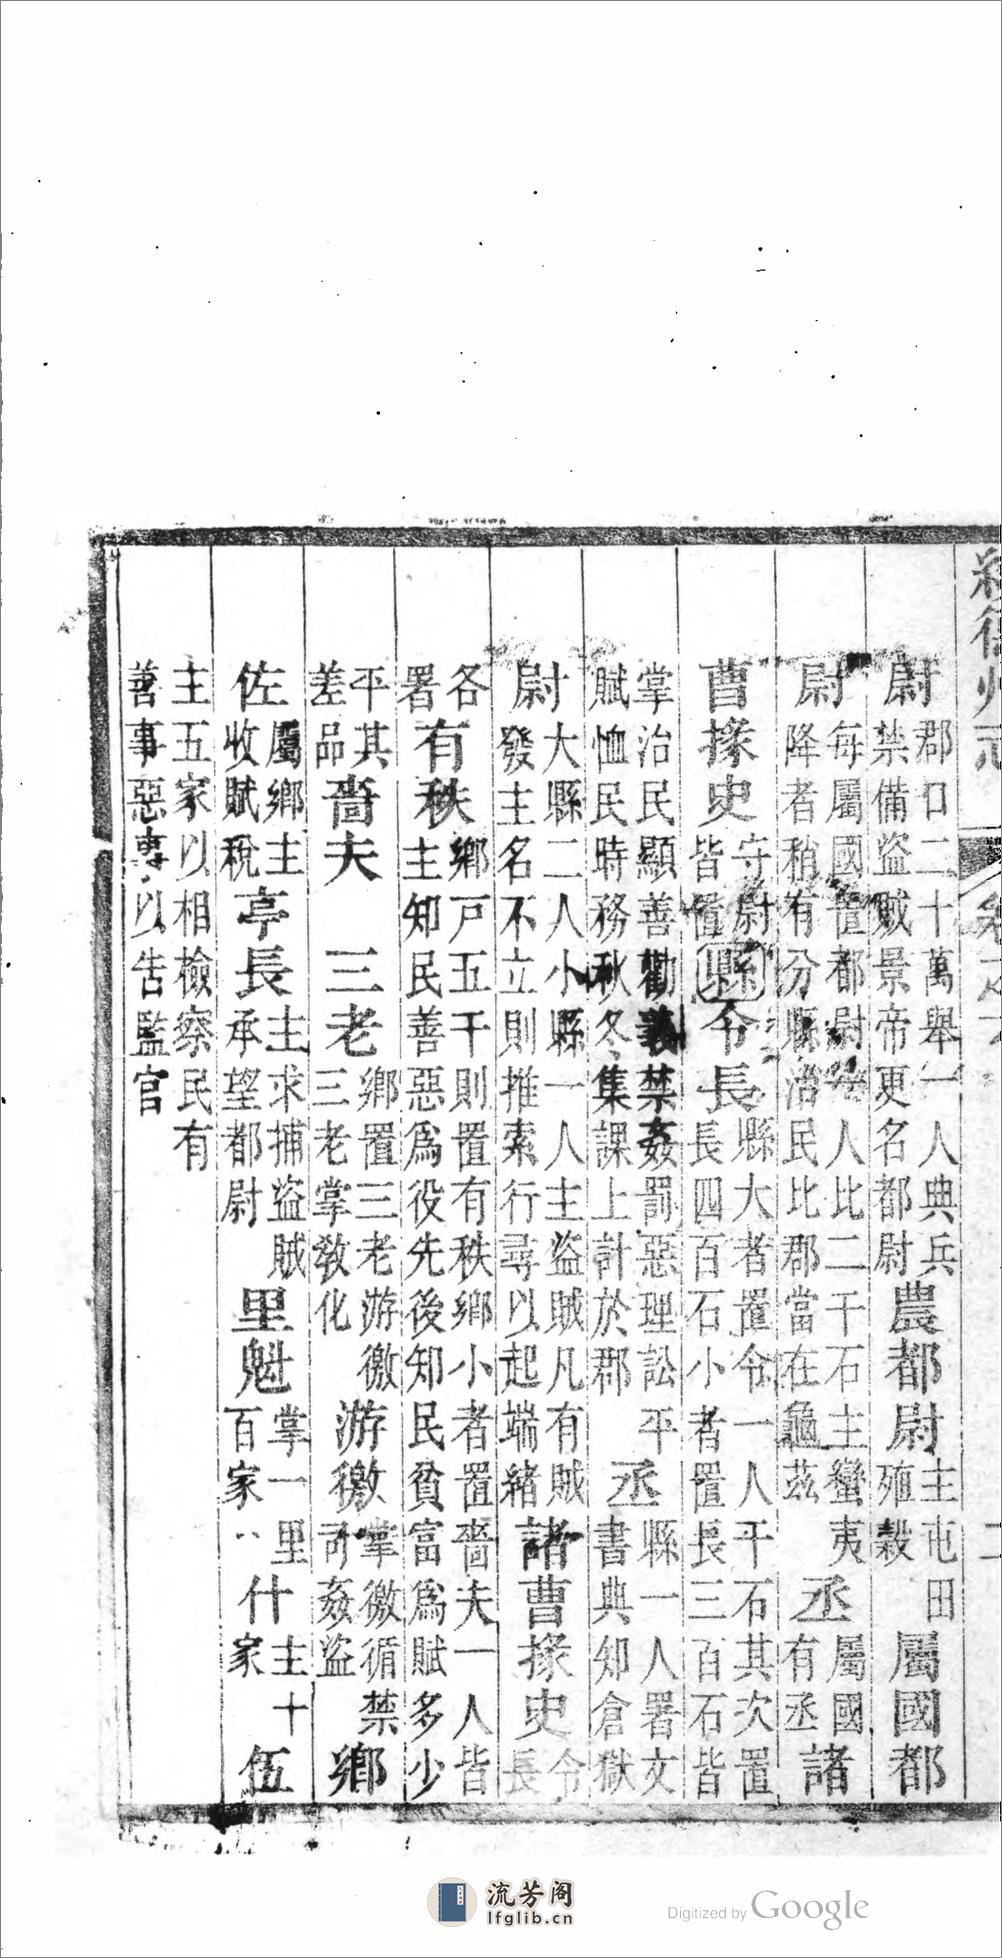 綏德州志
尉郡口二十萬舉一人典兵禁備盜賊景帝更名都尉農都尉主屯田殖穀屬國都
尉每屬國置都尉一人比二千石主蠻夷降者稍有分縣治民比郡當在龜茲丞屬國有丞諸
曹掾史守尉皆置縣令長縣大者置令一人千石其次置長四百石小者置長三百石皆
掌治民顯善勸義禁姦罰惡理訟平賦恤民時務秋冬集課上計於郡丞縣一人署文書典知倉獄
尉大縣二人小縣一人主盜賊凡有賊發主名不立則推索行尋以起端緒諸曹掾史令長
各署有秩鄉戶五千則置有秩鄉小者置嗇夫一人皆主知民善惡爲役先後知民貧富爲賦多少
平其差品嗇夫 三老鄉置三老游徼三老掌敎化游徼掌徼循禁司姦盜鄉
佐屬鄉主收賦稅亭長主求捕盜賊承望都尉里魁掌一里百家什主十家伍
主五家以相檢察民有善事惡事以告監官
流芳阁
lfglib.cn
Digitized by Google